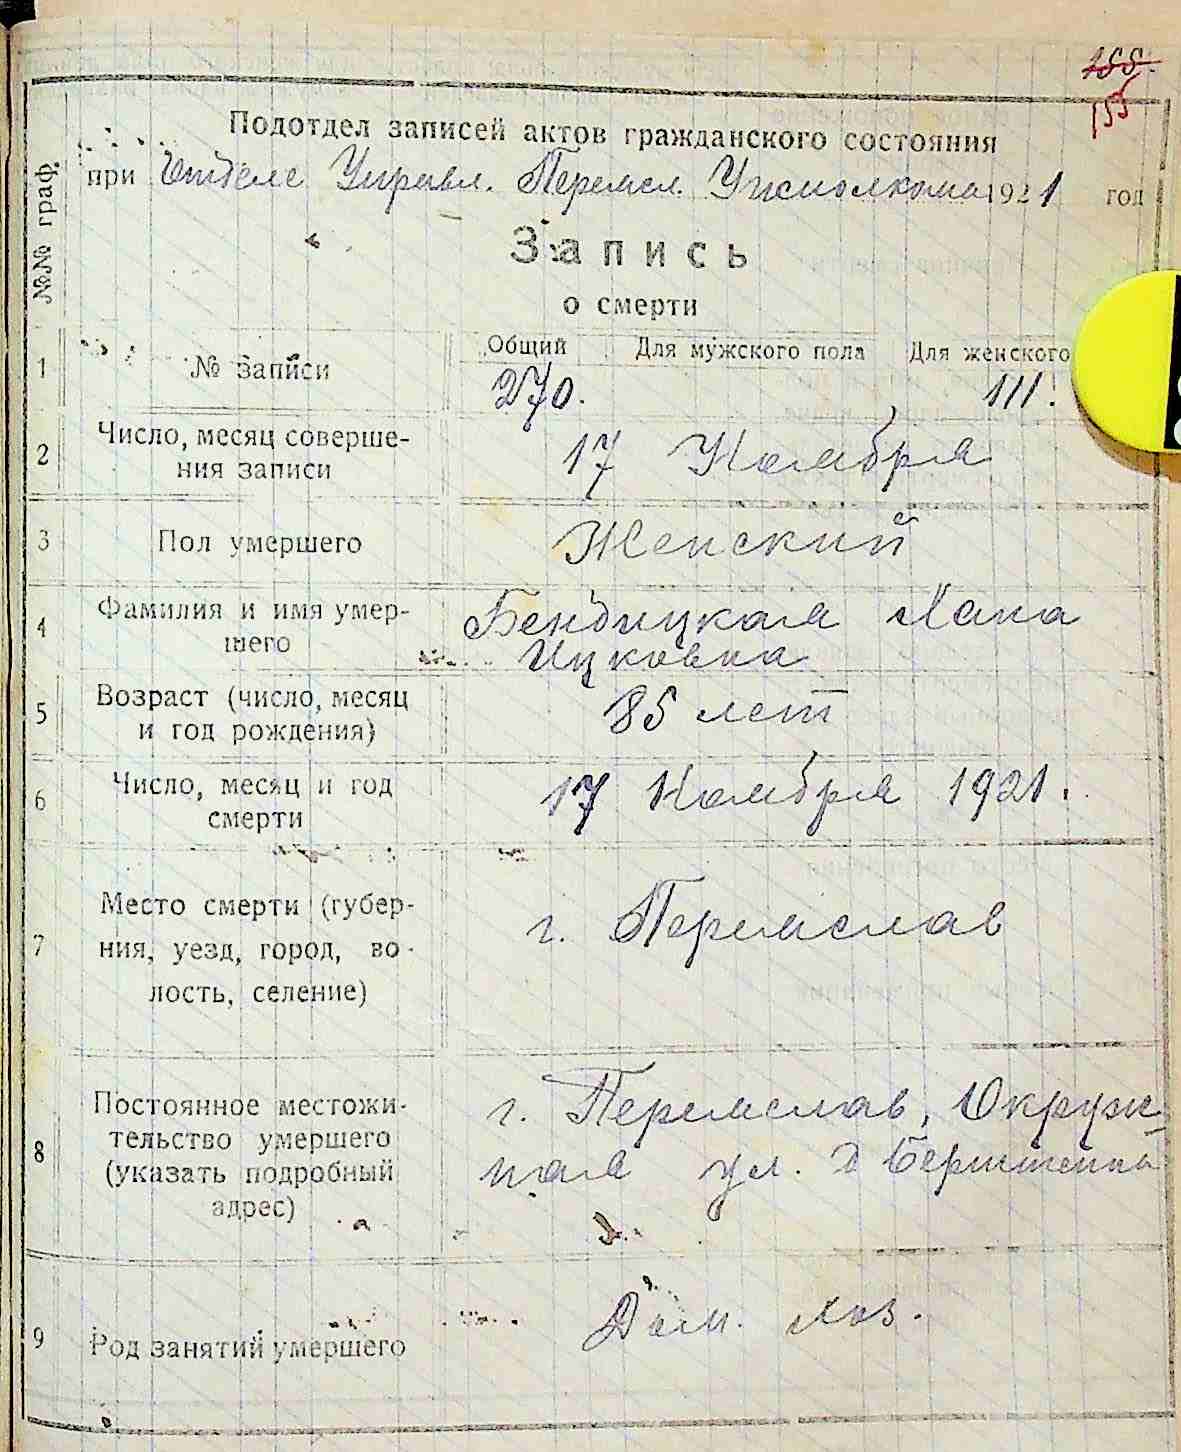 155.
155
Подотдел записей актов гражданского состояния
при Отделе Управл. Переясл. Уисполкома 1921 год
№№ граф.
Запись
о смерти
1 № записи Общий Для мужского пола Для женского
270. 111.
2 Число, месяц соверше-
ния записи 17 Ноября
3 Пол умершего Женский
4 Фамилия и имя умер-
шего Бендицкая Хана
Ицковна
5 Возраст (число, месяц
и год рождения) 85 лет
6 Число, месяц и год
смерти 17 Ноября 1921.
7 Место смерти (губер-
ния, уезд, город, во-
лость, селение) г. Переяслав
8 Постоянное местожи-
тельство умершего
(указать подробный
адрес) г. Переяслав, Окруж-
ная ул. д Бернштейна
9 Род занятий умершего Дом. хоз.